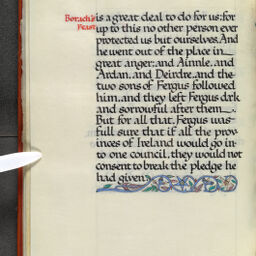 Borach's
Feast
is a great deal to do for us: for
up to this no other person ever
protected us but ourselves. And
he went out of the place in
great anger: and Ainnle, and
Ardan, and Deirdre, and the
two sons of Fergus followed
him, and they left Fergus dark
and sorrowful after them.
But for all that, Fergus was
full sure that if all the prov
inces of Ireland would go in
to one council, they would not
consent to break the pledge he
had given.